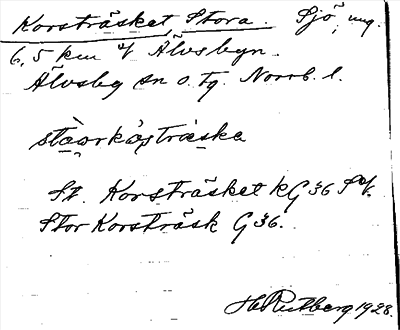 Korsträsket, Stora. Sjö, ung.
6,5 km v Älvsbyn.
Älvsby sn o. tg. Norrb. l.
stàorkåstrаska
St. Korsträsket kG 36
Stor Korsträsk G 36.
H. Rutberg 1928.